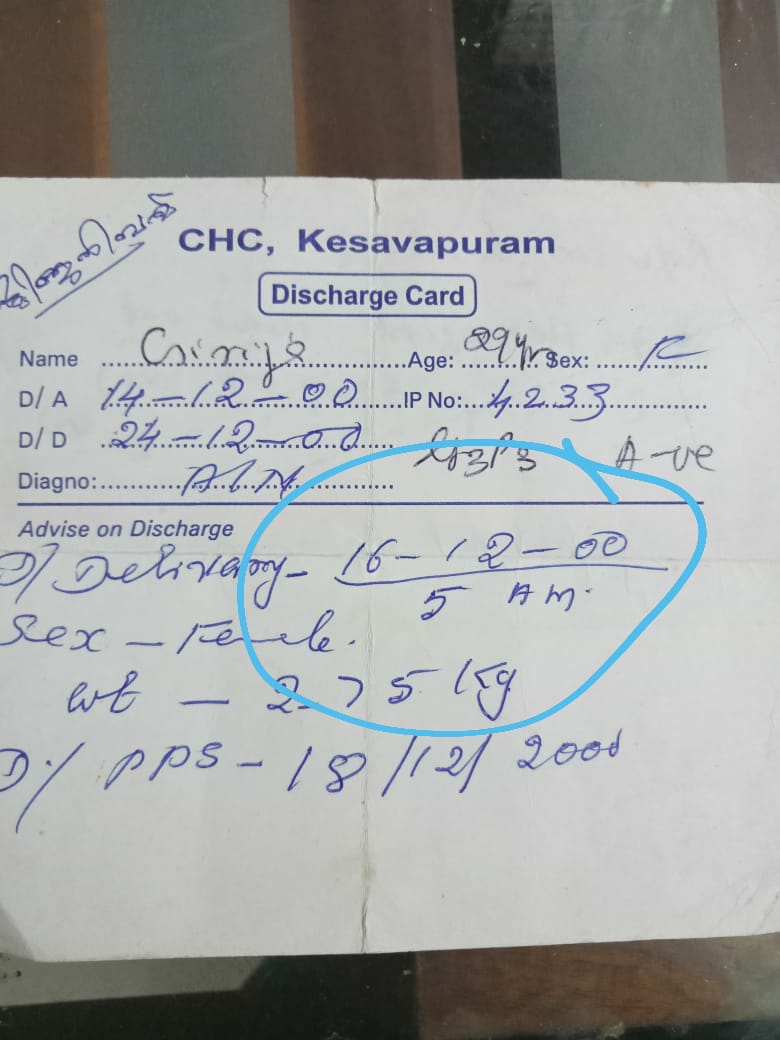 CHC, Kesavapuram
Discharge Card
Name Girija Age: 29 yrs Sex: F
D/A 14-12-00 IP No: 4233
D/D 24-12-00 G3P3 A-ve
Diagno:
Advise on Discharge
D/ Delivery - 16-12-00
5 AM.
Sex - Female.
wt - 2.75 Kg
D/ PPS - 18/12/2000